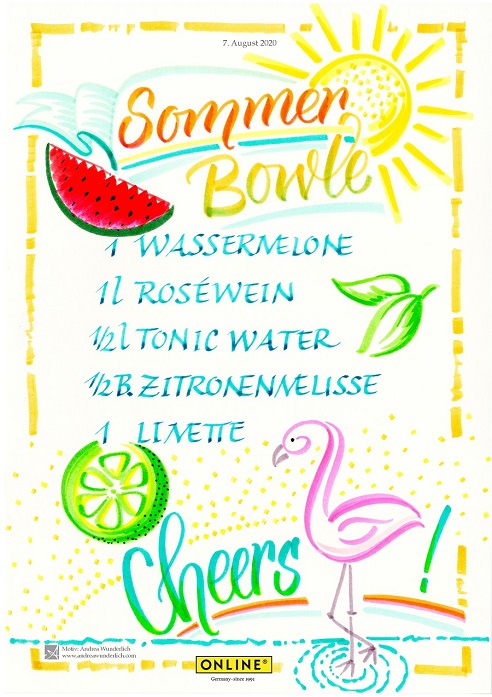 7. August 2020
Sommer
Bowle
1 WASSERMELONE
1l ROSÉWEIN
1/2l TONIC WATER
1/2B. ZITRONENMELISSE
1 LIMETTE
Cheers!
Motiv: Andrea Wunderlich
www.andreawunderlich.com
ONLINE®
Germany · since 1991